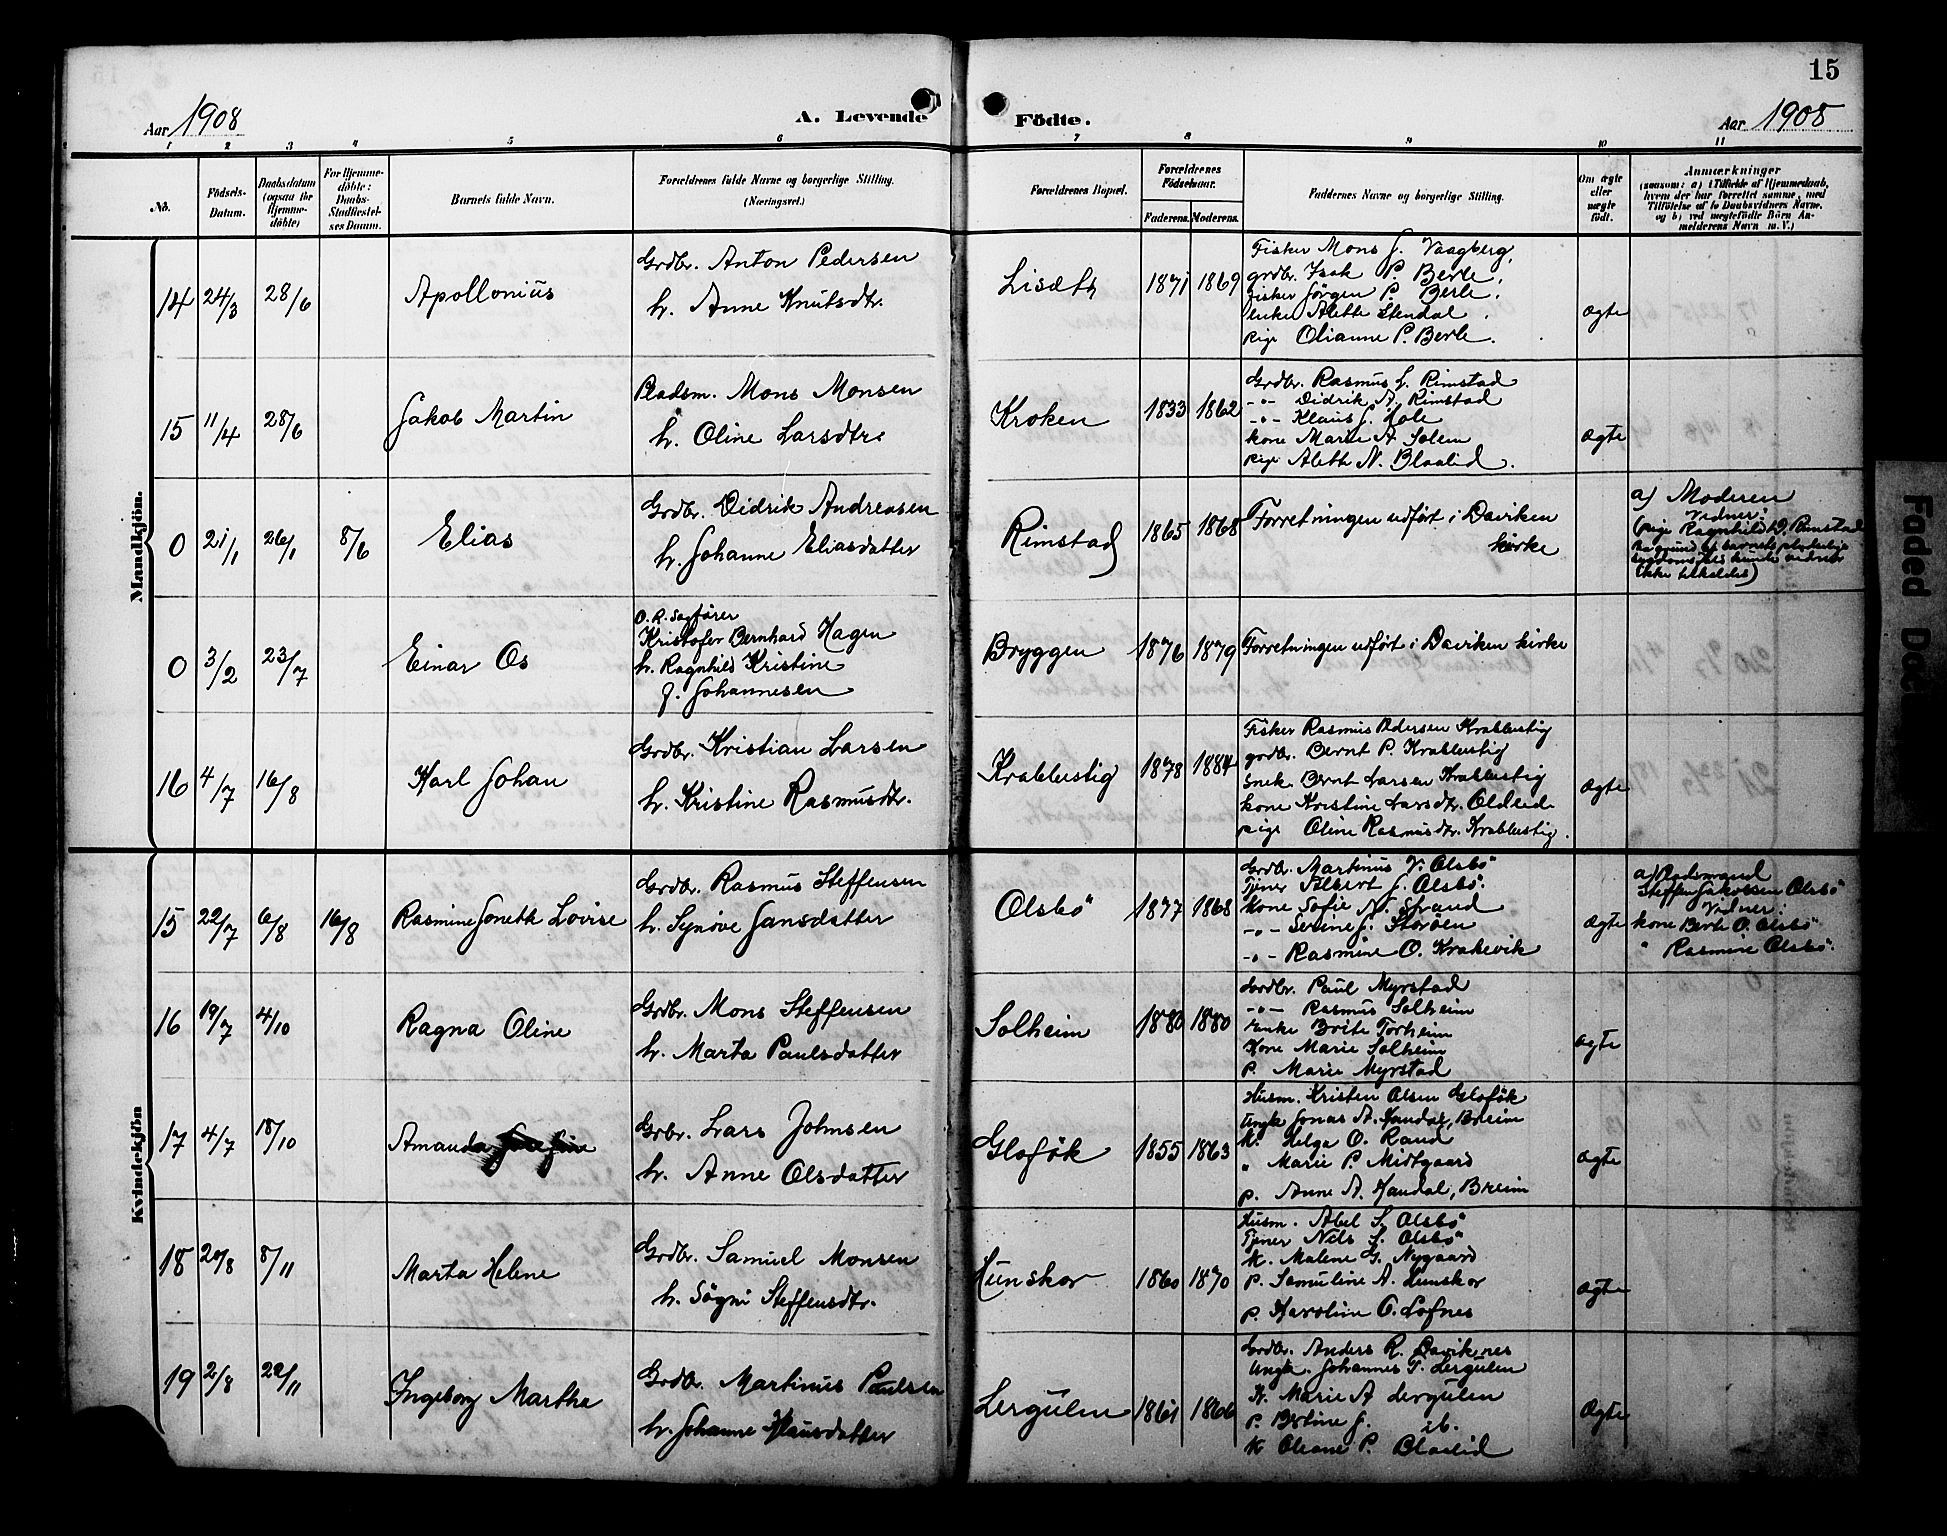 15
Aar 1908
A. Levende Födte.
Aar 1908
1 2 3 4 5 6 7 8 9 10 11
No.
Födsels-Datum.
Daabsdatum (ogsaa for Hjemmedöbte)
For Hjemmedöbte: Daabs-Stadfæstelses Datum.
Barnets fulde Navn.
Forældrenes fulde Navne og borgerlige Stilling. (Næringsvei.)
Forældrenes Bopæl.
Forældrenes Födselsaar.
Faderens. Moderens.
Faddernes Navne og borgerlige Stilling.
Om ægte eller uægte födt.
Anmærkninger
(saasom: a) i Tilfælde af Hjemmedaab, hvem der har forrettet samme, med Tilföielse af to Daabsvidners Navne, og b) ved uægtefödte Börn Anmelderens Navn m. V.)
Mandkjön.
14 24/3 28/6
Apollonius
Grdbr. Anton Pedersen
h. Anne Knutsdtr.
Liseth
1871 1869
Fisker Mons J. Vaagberg,
grdbr. Isak P. Berle,
Fisker Jörgen P. Berle,
enke Alette Stendal,
pige Olianne P. Berle.
ægte
15 11/4 28/6
Jakob Martin
Pladsm. Mons Monsen
h. Oline Larsdtr.
Kroken
1833 1862
Grdbr. Rasmus L. Rimstad
-"- Didrik A. Rimstad
-"- Klaus J. Hole
kone Marie A. Solem
pige Alette N. Blaalid.
ægte
0 21/1 26/1 8/6
Elias
Grdbr. Didrik Andreasen
h. Johanne Eliasdatter
Rimstad
1865 1868
Forretningen udført i Daviken
kirke
a) Moderen
Vidner:
(pige Ragnhild D. Rimstad
Paa grund af barnets pludselige
sygdom kunde vidner
ikke tilkaldes)
0 3/2 23/7
Einar Os
O. R. Sagfører
Kristofer Bernhard Hagen
h. Ragnhild Kristine
f. Johannesen
Bryggen
1876 1879
Forretningen udført i Daviken kirke
16 4/7 16/8
Karl Johan
Grdbr. Kristian Larsen
h. Kristine Rasmusdtr.
Krabbestig
1878 1884
Fisker Rasmus Pedersen Krabbestig
grdbr. Bernt P. Krabbestig
Snek. Bernt Larsen Krabbestig
kone Kristine Larsdtr. Oldeid
pige Oline Rasmusdtr. Krabbestig.
ægte
Kvindekjön
15 22/7 6/8 16/8
Rasmine Jonette Lovise
Grdbr. Rasmus Steffensen
h. Synøve Jansdatter
Olsbö
1877 1868
Grdbr. Martinus V. Olsbö
Tjener Albert J. Olsbö.
Kone Sofie N. Strand
-"- Serine J. Störöen
-"- Rasmine O. Krakevik
ægte
a) Radsmand
Steffen Jakobsen Olsbö
Vidner:
kone Berte O. Olsbö
" Rasmine Olsbö.
16 19/7 4/10
Ragna Oline
Grdbr. Mons Steffensen
h. Marta Paulsdatter
Solheim
1880 1880
Gardbr. Paul Myrstad
-"- Rasmus Solheim
Enke Brite Torheim
Kone Marie Solheim
P. Marie Myrstad
ægte
17 4/7 18/10
Amanda
Grbr. Lars Johnsen
h. Anne Olsdatter
Glofök
1855 1863
Husm. Kristen Olsen Gloføk
Ungk. Jonas A. Handal, Breim
K. Helga O. Rand
" Marie P. Midtgaard
p. Anne A. Handal, Breim
ægte
18 20/8 8/11
Marta Helene
Grdbr. Samuel Monsen
h. Søgni Steffensdtr.
Hunskor
1860 1870
Husm. Abel S. Olsbö
Tjener Nils S. Olsbö
K. Malene G. Nygaard
P. Samuline A. Hunskor
p. Karoline O. Lofnes
ægte
19 2/8 22/11
Ingeborg Martha
Grdbr. Martinus Paulsen
h. Johanne Klausdatter
Lergulen
1861 1866
Gardbr. Anders R. Daviknes
Ungk. Johannes T. Lergulen
K. Marie A Lergulen
P. Bertine J. ib.
K Oleane P. Blaalid
Ægte
Faded Doc